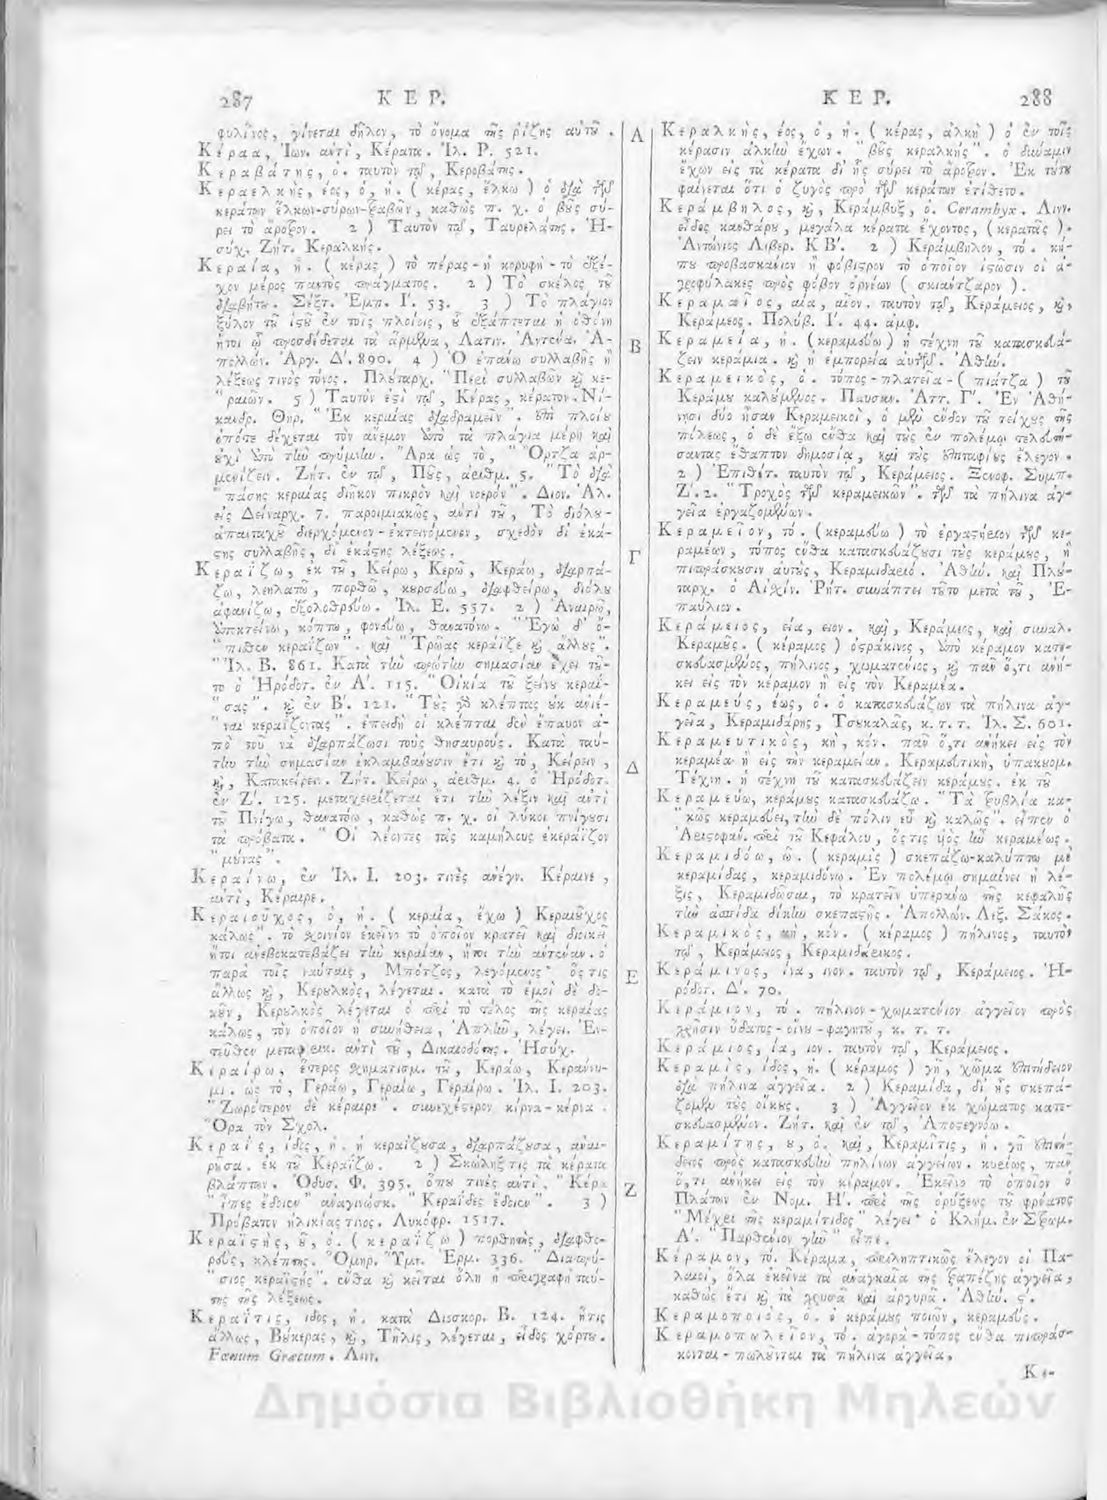 287 ΚΕΡ.
φυλῖνος, γίνεται δῆλον, τὸ ὄνομα τῆς ῥίζης αὐτοῦ.
Κέραα, Ἰων. ἀντὶ, Κέρατα. Ἰλ. Ρ. 521.
Κεραβάτης, ὁ. ταυτὸν τῷ, Κεροβάτης.
Κεραελκὴς, έος, ὁ, ἡ. (κέρας, ἕλκω) ὁ διὰ τῶν
κεράτων ἕλκων-σύρων-τραβῶν, καθὼς π. χ. ὁ βοῦς σύ-
ρει τὸ ἄροτρον. 2) Ταυτὸν τῷ, Ταυρελάτης. Ἡ-
σύχ. Ζήτ. Κεραλκής.
Κεραία, ἡ. (κέρας) τὸ πέρας-ἡ κορυφὴ-τὸ ἐξέ-
χον μέρος παντὸς πράγματος. 2) Τὸ σκέλος τοῦ
διαβήτου. Σέξτ. Ἐμπ. Γ'. 53. 3) Τὸ πλάγιον
ξύλον τοῦ ἱστοῦ ἐν τοῖς πλοίοις, οὗ ἐξάπτεται ἡ ὀθόνη
ἤτοι ᾧ προσδέδεται τὰ ἄρμενα, Λατιν. Ἀντένα. Ἀ-
πολλών. Ἀργ. Δ'. 890. 4) Ὁ ἐπάνω συλλαβῆς ἢ
λέξεως τινὸς τόνος. Πλούταρχ. "Περὶ συλλαβῶν καὶ κε-
"ραιῶν. 5) Ταυτόν ἐστι τῷ, Κέρας, κέρατον. Νί-
κανδρ. Θηρ. "Ἐκ κεραίας διαδραμεῖν". ἐπὶ πλοίου
ὁπότε δέχεται τὸν ἄνεμον ὑπὸ τὰ πλάγια μέρη καὶ
οὐχὶ ὑπὸ τὴν πρύμνην. Ἄρα ὡς τὸ, "Ὄρτζα ἀρ-
μενίζειν. Ζήτ. ἐν τῷ, Ποῦς, ἀριθμ. 5. "Τὸ διὰ
"πάσης κεραίας διῆκον πικρὸν καὶ νοερόν". Διον. Ἁλ.
εἰς Δείναρχ. 7. παροιμιακῶς, ἀντὶ τοῦ, Τὸ διόλου-
ἁπανταχοῦ διερχόμενον-ἐκτεινόμενον, σχεδὸν δι' ἑκά-
στης συλλαβῆς, δι' ἑκάστης λέξεως.
Κεραΐζω, ἐκ τοῦ, Κείρω, Κερῶ, Κεράω, διαρπά-
ζω, λεηλατῶ, πορθῶ, κουρσεύω, διαφθείρω, διόλου
ἀφανίζω, ἐξολοθρεύω. Ἰλ. Ε. 557. 2) Ἀναιρῶ,
ἀποκτείνω, κόπτω, φονεύω, θανατόνω. "Ἐγὼ δ' ὄ-
"πιθεν κεραΐζων". καὶ "Τρῶας κεράϊζε καὶ ἄλλους".
"Ἰλ. Β. 861. Κατὰ τὴν πρώτην σημασίαν ἔχει τοῦ-
το ὁ Ἡρόδοτ. ἐν Α'. 115. "Οἰκία τοῦ ξείνου κεραΐ-
"σας". καὶ ἐν Β'. 121. "Τοὺς γὰρ κλέπτας οὐκ ἀνιέ-
"ναι κεραΐζοντας". ἐπειδὴ οἱ κλέπται δὲν ἔπαυον ἀ-
πὸ τοῦ νὰ διαρπάζωσι τοὺς θησαυρούς. Κατὰ ταύ-
την τὴν σημασίαν ἐκλαμβάνουσιν ἔτι καὶ τὸ, Κείρειν,
καὶ, Κατακείρειν. Ζήτ. Κείρω, ἀριθμ. 4. ὁ Ἡρόδοτ.
ἐν Ζ'. 125. μεταχειρίζεται ἔτι τὴν λέξιν καὶ ἀντὶ
τοῦ Πνίγω, θανατόω, καθὼς π. χ. οἱ λύκοι πνίγουσι
τὰ πρόβατα. "Οἱ λέοντες τὰς καμήλους ἐκεράϊζον
"μούνας".
Κεραίνω, ἐν Ἰλ. Ι. 203. τινὲς ἀνέγν. Κέραινε,
ἀντὶ, Κέραιρε.
Κεραιοῦχος, ὁ, ἡ. (κεραία, ἔχω) Κεραιοῦχος
κάλως". τὸ σχοινίον ἐκεῖνο τὸ ὁποῖον κρατεῖ καὶ διοικεῖ
ἤτοι ἀνεβοκατεβάζει τὴν κεραίαν, ἤτοι τὴν ἀντέναν. ὁ
παρὰ τοῖς ναύταις, Μπότζος, λεγόμενος· ὅς τις
ἄλλως καὶ, Κερουλκὸς, λέγεται. κατὰ τὸ ἐμοὶ δὲ δο-
κοῦν, Κερουλκὸς λέγεται ὁ περὶ τὸ τέλος τῆς κεραίας
κάλως, τὸν ὁποῖον ἡ συνήθεια, Ἁπλῆν, λέγει. Ἐν-
τεῦθεν μεταφορικ. ἀντὶ τοῦ, Δικαιοδότης. Ἡσύχ.
Κεραίρω, ἕτερος σχηματισμ. τοῦ, Κεράω, Κεράννυ-
μι. ὡς τὸ, Γεράω, Γεραίω, Γεραίρω. Ἰλ. Ι. 203.
"Ζωρότερον δὲ κέραιρε". συνεχέστερον κίρνα-κέρνα.
Ὅρα τὸν Σχολ.
Κεραῒς, ΐδος, ἡ. ἡ κεραΐζουσα, διαρπάζουσα, ἀναι-
ροῦσα. ἐκ τοῦ Κεραΐζω. 2) Σκώληξ τις τὰ κέρατα
βλάπτων. Ὀδυσ. Φ. 395. ὅπου τινὲς ἀντὶ, "Κέρα
"ἶπες ἔδοιεν" ἀναγινώσκ. "Κεραΐδες ἔδοιεν". 3)
Πρόβατον ἡλικίας τινος. Λυκόφρ. 1317.
Κεραϊστὴς, οῦ, ὁ. (κεραΐζω) πορθητὴς, διαφθο-
ροῦς, κλέπτης. Ὅμηρ. Ὕμν. Ἑρμ. 336.
"σιος κεραϊστής". ἔνθα καὶ κεῖται ὅλη ἡ περιγραφὴ ταύ-
της τῆς λέξεως.
Κεραῖτις, ιδος, ἡ. κατὰ Διοσκορ. Β. 124. ἥτις
ἄλλως, Βούκερας, καὶ, Τῆλις, λέγεται, εἶδος χόρτου.
Fœnum Græcum. Λιν.
Α
Β
Γ
Δ
Ε
Ζ
ΚΕΡ. 288
Κεραλκὴς, έος, ὁ, ἡ. (κέρας, ἀλκὴ) ὁ ἐν τοῖς
κέρασιν ἀλκὴν ἔχων. "βοῦς κεραλκής". ὁ δύναμιν
ἔχων εἰς τὰ κέρατα δι' ἧς σύρει τὸ ἄροτρον. Ἐκ τούτου
φαίνεται ὅτι ὁ ζυγὸς πρὸ τῶν κεράτων ἐτίθετο.
Κεράμβηλος, καὶ, Κεράμβυξ, ὁ. Cerambyx. Λινν.
εἶδος κανθάρου, μεγάλα κέρατα ἔχοντος, (κερατᾶς).
Ἀντώνιος Λιβερ. ΚΒ'. 2) Κεράμβηλον, τό. κή-
που προβασκάνιον ἢ φόβιστρον τὸ ὁποῖον ἱστῶσιν οἱ ἀ-
γροφύλακες πρὸς φόβον ὀρνέων (σκιαντζᾶρον).
Κεραμαῖος, αία, αῖον. ταυτὸν τῷ, Κεράμειος, καὶ,
Κεράμεος. Πολύβ. Ι'. 44. ἀμφ.
Κεραμεία, ἡ. (κεραμεύω) ἡ τέχνη τοῦ κατασκευά-
ζειν κεράμια. καὶ ἡ ἐμπορεία αὐτῶν. Ἀθήν.
Κεραμεικὸς, ὁ. τόπος-πλατεῖα-(πιάτζα) τοῦ
Κεράμου καλούμενος. Παυσαν. Ἀττ. Γ'. Ἐν Ἀθή-
νησι δύο ἦσαν Κεραμεικοὶ, ὁ μὲν ἔνδον τοῦ τείχους τῆς
πόλεως, ὁ δὲ ἔξω ἔνθα καὶ τοὺς ἐν πολέμῳ τελευτή-
σαντας ἔθαπτον δημοσίᾳ, καὶ τοὺς ἐπιταφίους ἔλεγον.
2) Ἐπιθέτ. ταυτὸν τῷ, Κεράμειος. Ξενοφ. Συμπ.
Ζ'. 2. "Τροχὸς τῶν κεραμεικῶν". τῶν τὰ πήλινα ἀγ-
γεῖα ἐργαζομένων.
Κεραμεῖον, τό. (κεραμεύω) τὸ ἐργαστήριον τῶν κε-
ραμέων, τόπος ἔνθα κατασκευάζουσι τοὺς κεράμους, ἢ
πιπράσκουσιν αὐτοὺς, Κεραμιδαριό. Ἀθήν. καὶ Πλού-
ταρχ. ὁ Αἰσχίν. Ῥήτ. συνάπτει τοῦτο μετὰ τοῦ, Ἐ-
παύλιον.
Κεράμειος, εία, ειον. καὶ, Κεράμεος, καὶ συναλ.
Κεραμοῦς. (κέραμος) ὀστράκινος, ἀπὸ κέραμον κατε-
σκευασμένος, πήλινος, χωματένιος, καὶ πᾶν ὅ,τι ἀνή-
κει εἰς τὸν κέραμον ἢ εἰς τὸν Κεραμέα.
Κεραμεὺς, έως, ὁ. ὁ κατασκευάζων τὰ πήλινα ἀγ-
γεῖα, Κεραμιδάρης, Τσουκαλᾶς, κ. τ. τ. Ἰλ. Σ. 601.
Κεραμευτικὸς, κὴ, κόν. πᾶν ὅ,τι ἀνήκει εἰς τὸν
κεραμέα ἢ εἰς τὴν κεραμείαν. Κεραμευτικὴ, ὑπακουομ.
Τέχνη. ἡ τέχνη τοῦ κατασκευάζειν κεράμους. ἐκ τοῦ
Κεραμεύω, κεράμους κατασκευάζω. "Τὰ τρυβλία κα-
"κῶς κεραμεύει, τὴν δὲ πόλιν εὖ καὶ καλῶς". εἶπεν ὁ
Ἀριστοφαν. περὶ τοῦ Κεφάλου, ὅς τις υἱὸς ἦν κεραμέως.
Κεραμιδόω, ῶ. (κεραμὶς) σκεπάζω-καλύπτω μὲ
κεραμίδας, κεραμιδόνω. Ἐν πολέμῳ σημαίνει ἡ λέ-
ξις, Κεραμιδῶσαι, τὸ κρατεῖν ὑπεράνω τῆς κεφαλῆς
τὴν ἀσπίδα δίκην σκεπαστῆς. Ἀπολλών. Λεξ. Σάκος.
Κεραμικὸς, κὴ, κόν. (κέραμος) πήλινος, ταυτὸν
τῷ, Κεράμειος, Κεραμιδάρικος.
Κεράμινος, ίνα, ινον. ταυτὸν τῷ, Κεράμειος. Ἡ-
ρόδοτ. Δ'. 70.
Κεράμιον, τό. πήλινον-χωματένιον ἀγγεῖον πρὸς
χρῆσιν ὕδατος-οἴνου-φαγητοῦ, κ. τ. τ.
Κεράμιος, ία, ιον. ταυτὸν τῷ, Κεράμειος.
Κεραμὶς, ίδος, ἡ. (κέραμος) γῆ, χῶμα ἐπιτήδειον
διὰ πήλινα ἀγγεῖα. 2) Κεραμίδα, δι' ἧς σκεπά-
ζομεν τοὺς οἴκους. 3) Ἀγγεῖον ἐκ χώματος κατε-
σκευασμένον. Ζήτ. καὶ ἐν τῷ, Ἀποστεγνόω.
Κεραμίτης, ου, ὁ. καὶ, Κεραμῖτις, ἡ. γῆ ἐπιτή-
δειος πρὸς κατασκευὴν πηλίνων ἀγγείων. κυρίως, πᾶν
ὅ,τι ἀνήκει εἰς τὸν κέραμον. Ἐκεῖνο τὸ ὁποῖον ὁ
Πλάτων ἐν Νομ. Η'. περὶ τῆς ὀρύξεως τοῦ φρύατος
"Μέχρι τῆς κεραμίτιδος" λέγει· ὁ Κλήμ. ἐν Στρωμ.
Α'. "Παρθένιον γῆν" εἶπε.
Κέραμον, τό. Κέραμα, περιληπτικῶς ἔλεγον οἱ Πα-
λαιοὶ, ὅλα ἐκεῖνα τὰ ἀναγκαῖα τῆς τραπέζης ἀγγεῖα,
καθὼς ἔτι καὶ τὰ χρυσᾶ καὶ ἀργυρᾶ. Ἀθήν. ϛ'.
Κεραμοποιὸς, ὁ. ὁ κεράμους ποιῶν, κεραμεύς.
Κεραμοπωλεῖον, τό. ἀγορά-τόπος ἔνθα πιπράσ-
κονται-πωλοῦνται τὰ πήλινα ἀγγεῖα.
Κε-
Δημόσια Βιβλιοθήκη Μηλεών